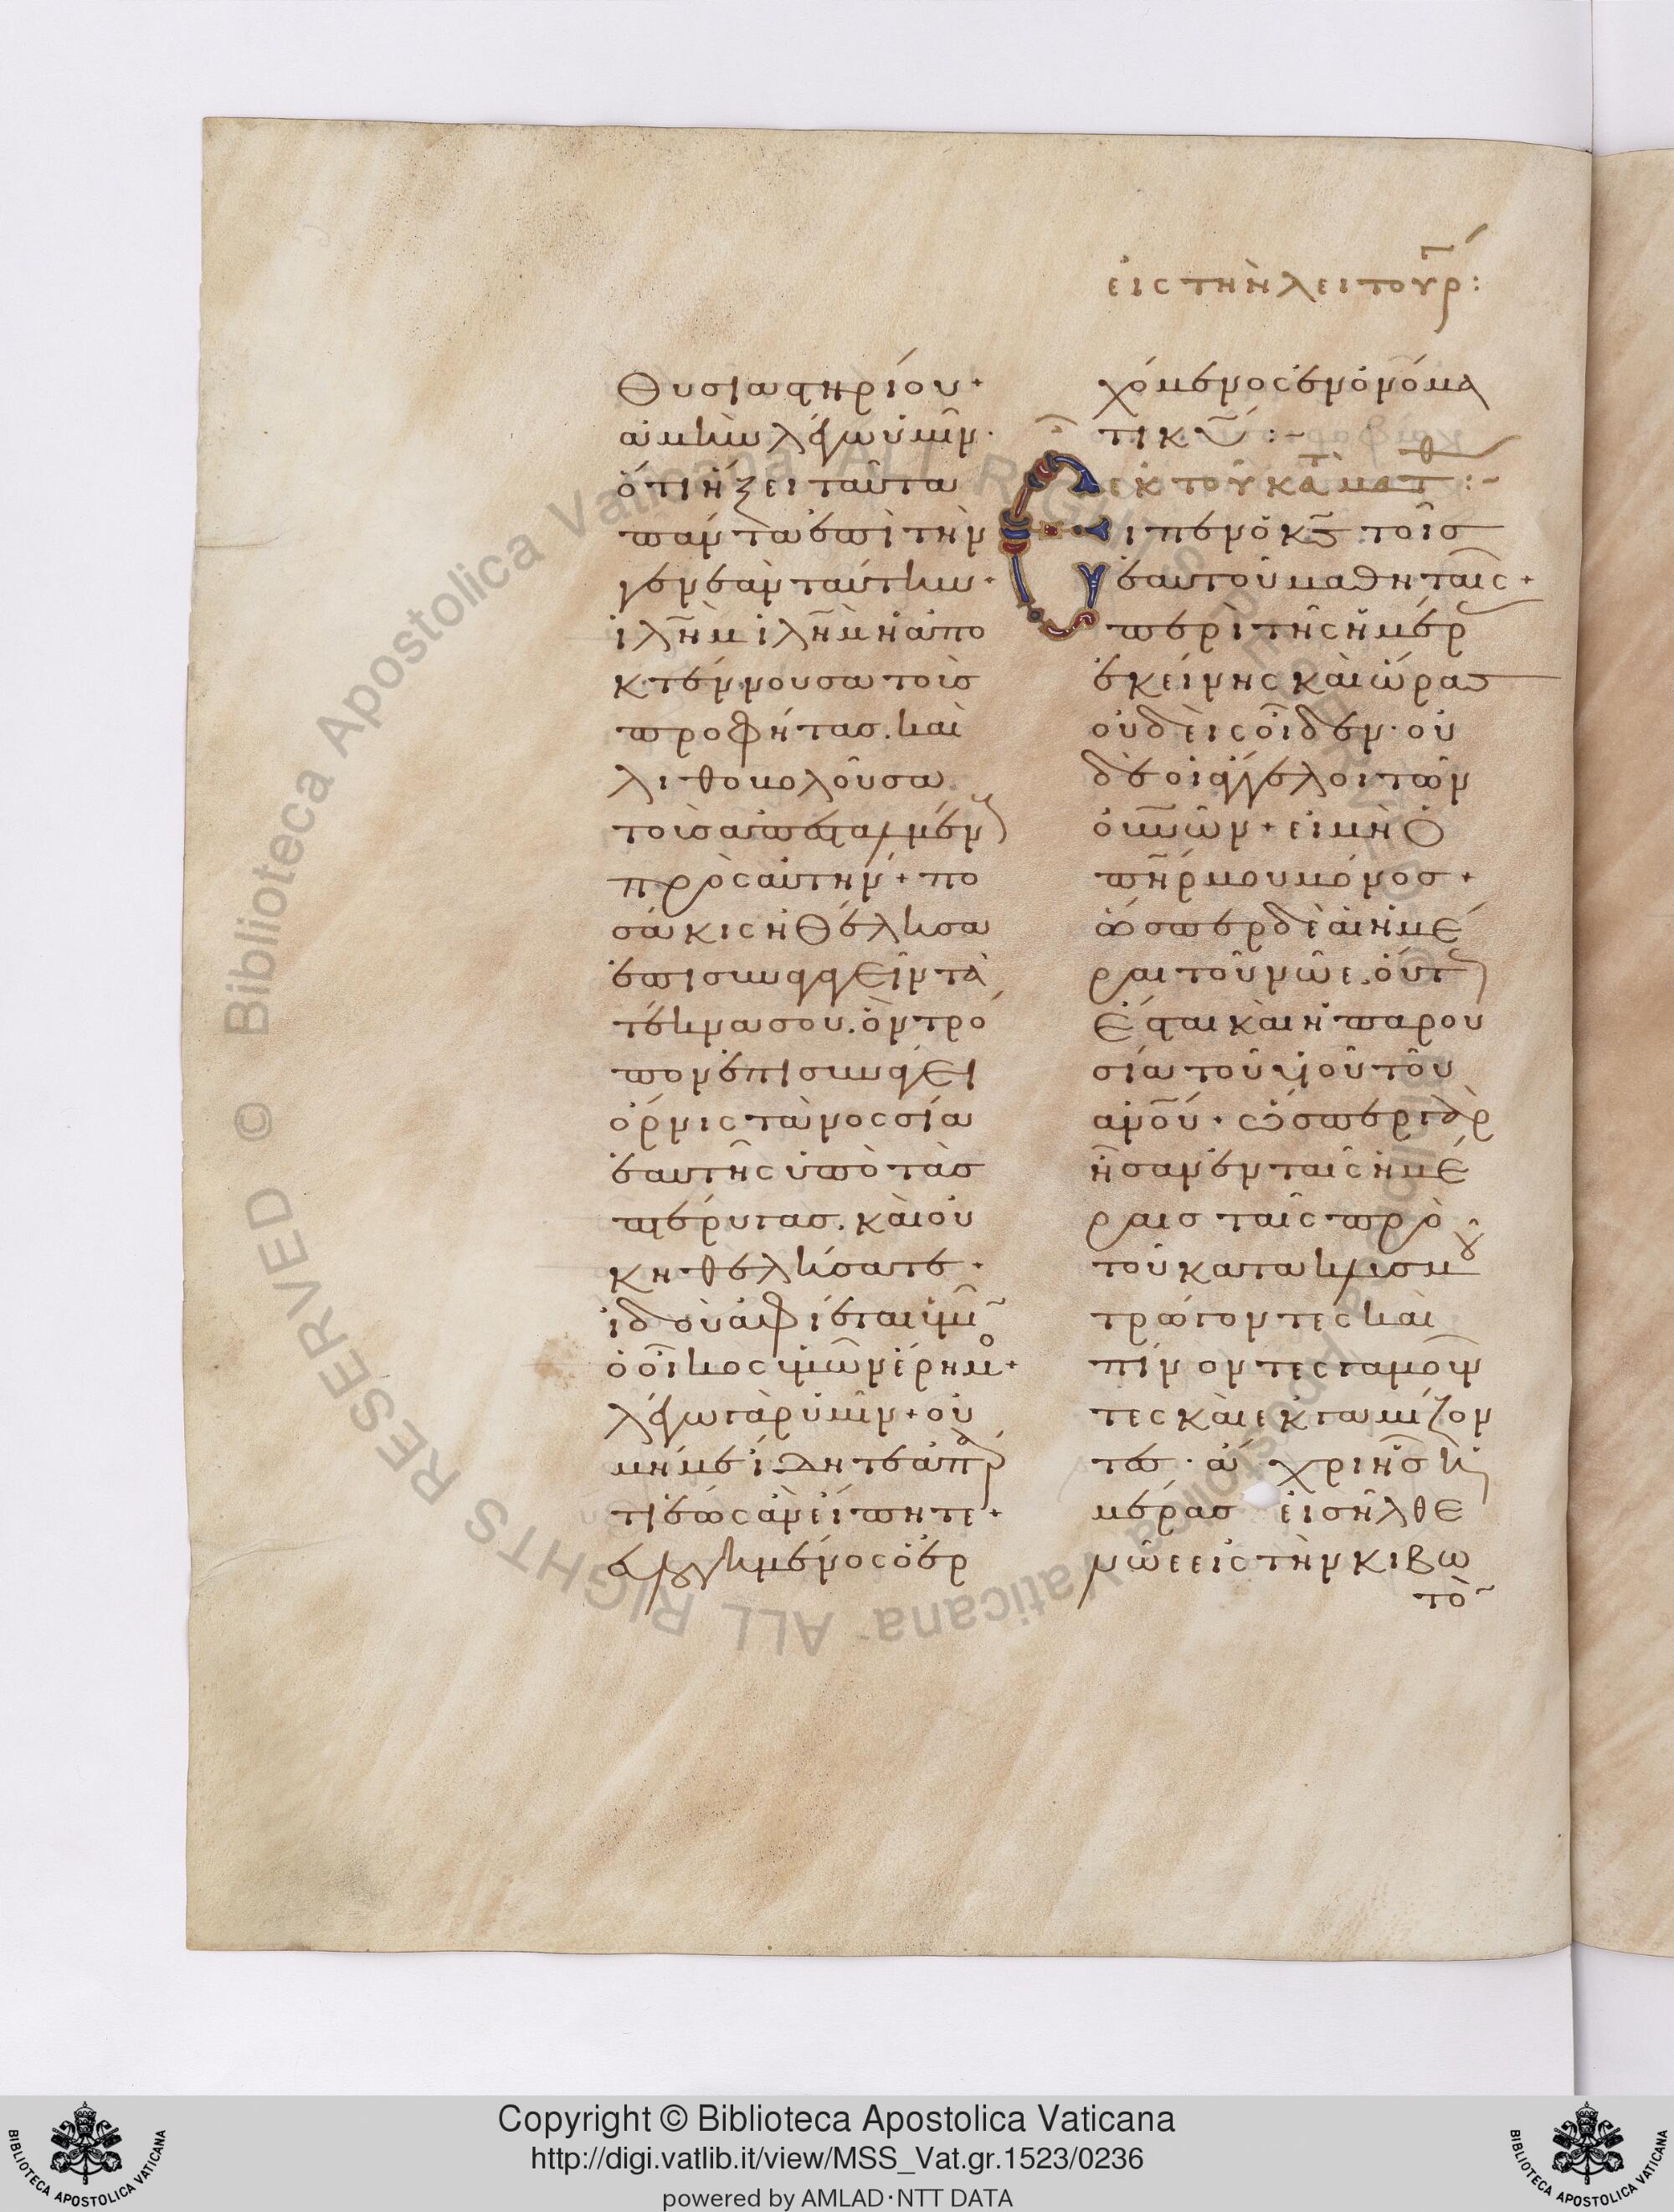 εἰς τὴν λειτουρ:
θυσιαστηρίου·
ἀμὴν λέγω ὑμῖν·
ὅτι ἥξει ταῦτα
πάντα ἐπὶ τὴν
γενεὰν ταύτην·
ἱλῆμ ἱλῆμ ἡ ἀπο
κτέννουσα τοὺς
προφήτας. καὶ
λιθοβολοῦσα
τοὺς ἀπεσταλμέν
πρὸς αὐτήν· πο
σάκις ἠθέλησα
ἐπισυναγαγεῖν τὰ
τέκνα σου. ὃν τρό
πον ἐπισυνάγει
ὄρνις τὰ νοσσία
ἑαυτῆς ὑπὸ τὰς
πτέρυγας. καὶ οὐ
κ ηθελήσατε·
ἰδοὺ ἀφίεται ὑμῖ
ὁ οἶκος ὑμῶν ἔρημο·
λέγω γὰρ ὑμῖν· οὐ
μή με ἴδητε ἀπάρ
τι ἕως ἂν εἴπητε·
εὐλογημένος ὁ ἐρ
χόμενος ἐν ὀνόμα
τι κυ :~
ἐκ τοῦ κατὰ ματθ :~
Εἶπεν ὁ κς τοῖς
ἑαυτοῦ μαθηταῖς·
περὶ τῆς ἡμέρ
ἐκείνης καὶ ὥρας
οὐδεὶς οἶδεν· οὐ
δὲ οἱ ἄγγελοι τῶν
οὐνῶν· εἰ μὴ ὁ
πηρ μου μόνος·
ὥσπερ δὲ αἱ ἡμέ
ραι τοῦ νῶε. οὕτ
ἔσται καὶ ἡ παρου
σία τοῦ υἱοῦ τοῦ
ανου· ὥσπερ γὰρ
ἦσαν ἐν ταῖς ἡμέ
ραις ταῖς πρὸ
τοῦ κατακλυσμοῦ
τρώγοντες καὶ
πίνοντες γαμοῦν
τες καὶ ἐκγαμίζον
τες· ἄχρι ἧς ἡ
μέρας εἰσῆλθε
νῶε εἰς τὴν κιβω
τὸ
Copyright © Biblioteca Apostolica Vaticana
http://digi.vatlib.it/view/MSS_Vat.gr.1523/0236
powered by AMLAD·NTT DATA
BIBLIOTECA APOSTOLICA VATICANA
BIBLIOTECA APOSTOLICA VATICANA
© Biblioteca Apostolica Vaticana ALL RIGHTS RESERVED © Biblioteca Apostolica Vaticana ALL RIGHTS RESERVED